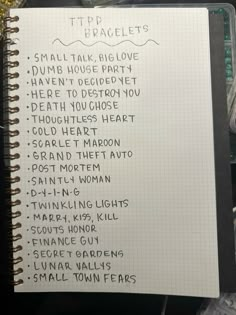 TTPD
BRACELETS
• SMALL TALK, BIG LOVE
• DUMB HOUSE PARTY
• HAVEN'T DECIDED YET
• HERE TO DESTROY YOU
• DEATH YOU CHOSE
• THOUGHTLESS HEART
• COLD HEART
• SCARLET MAROON
• GRAND THEFT AUTO
• POST MORTEM
• SAINTLY WOMAN
• D-Y-I-N-G
• TWINKLING LIGHTS
• MARRY, KISS, KILL
• SCOUTS HONOR
• FINANCE GUY
• SECRET GARDENS
• LUNAR VALLYS
• SMALL TOWN FEARS